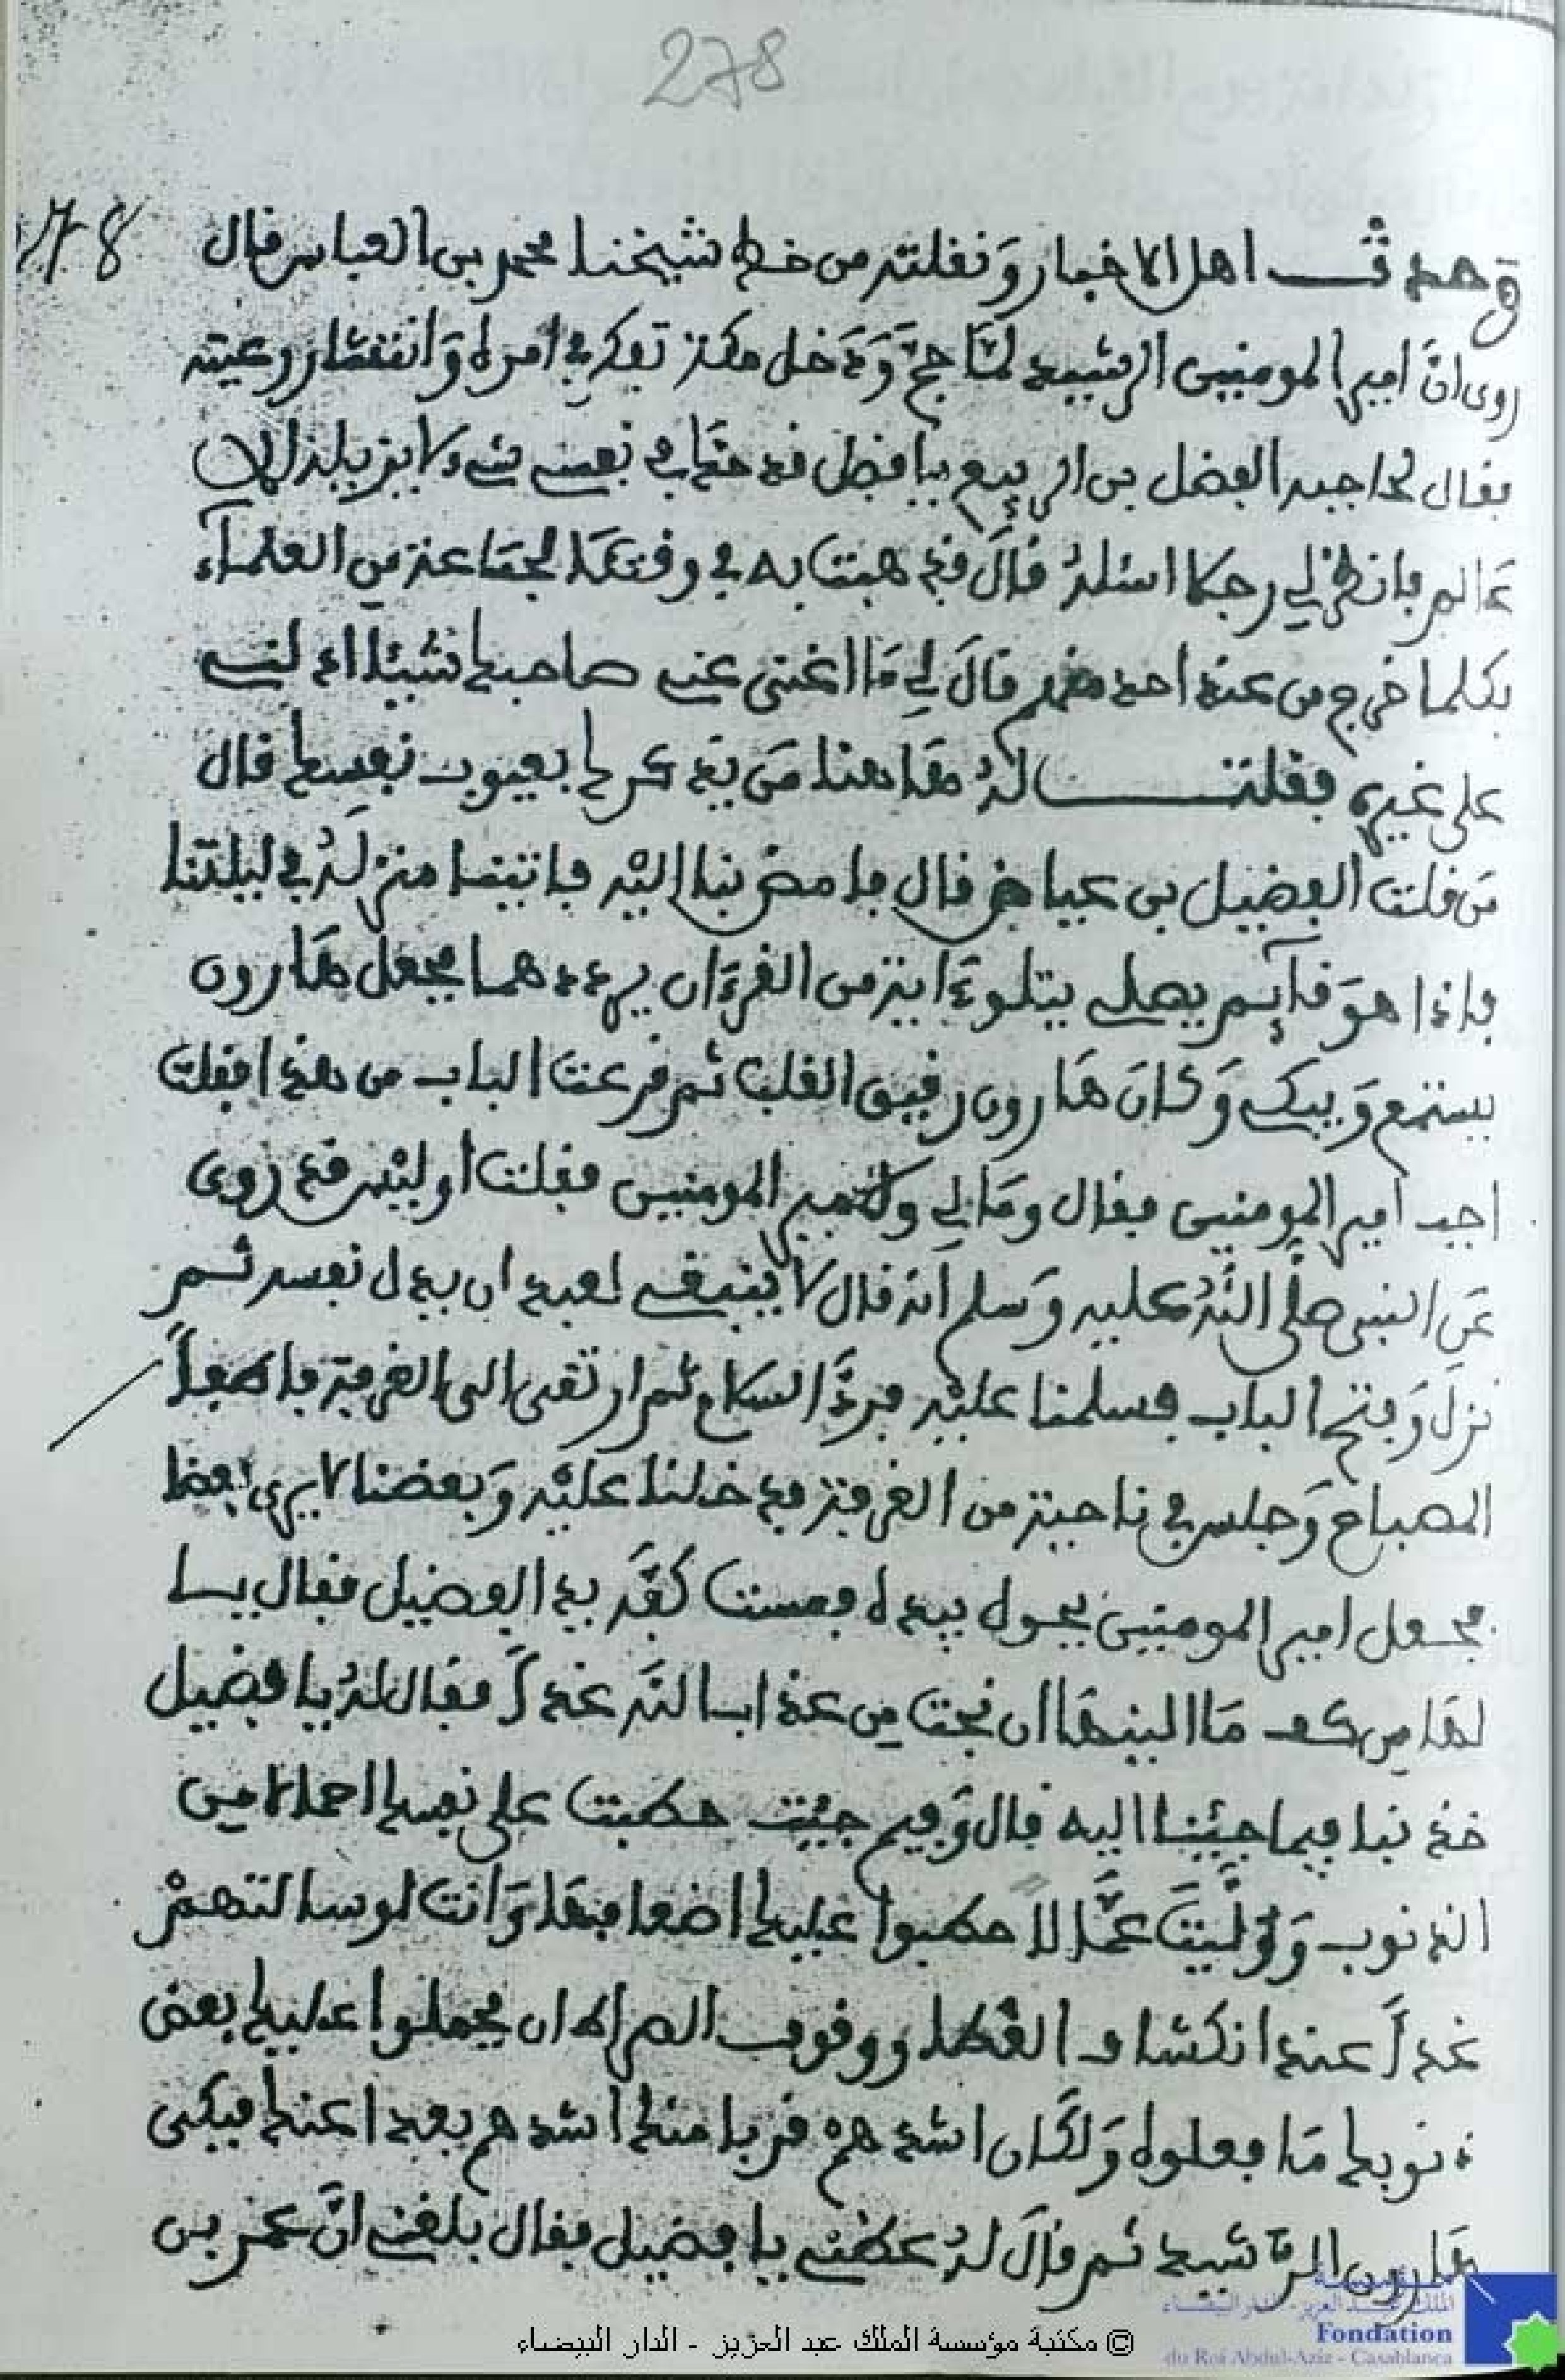 278
278
وحدث اهل الاخبار ونقلته من خط شيخنا محمد بن العباس قال
روى انّ امير المومنين الرشيد لمّا حجّ وَدَخل مكة تفكر في امره وَانتشار رعيته
فقال لحاجبه الفضل بن الربيع يا فضل قد حكّ في نفسي شيء لا يزيله الا
عَالم فانظر لي رجلا اسئله قالَ فجئته به في وقته لجمَاعة من العلمآء
فكلما خرج من عنده احد منهم قالَ لي مَا اغنى عني صاحبك شيئا ادلني
على غيره فقلت له هَا هنا مَن يذكرك بعيوب نفسك قال
مَن قلت الفضيل بن عياض قال فامض بنا اليْه فاتينا منزلهُ في ليلتنا
فاذا هوَ قآيم يصلي يتلو ءاية من القرءان يرددها فجعل هَارون
يستمع وَيبكي وَكانَ هَارون رقيق القلب ثم قرعت الباب من هذا فقلت
اجب امير المومنين فقال ومَا لي ولامير المومنين فقلت أوليْس قد روى
عَن النبي صلّى اللهُ عليه وَسلم انه قال لا ينبغي لعبد ان يذل نفسه ثم
نزلَ وَفتح الباب فسلمنا عليْه فردَّ السلام ثم ارتقى الى الغرفة فاطفأ
المصباح وَجلس في ناحية من الغرفة فدخلنا عليْه وَبعضنا لا يرى بعضا
فجعل امير المومنين يجول بيده فمست كفّه يد الفضيل فقال يا
لهَا من كف مَا الينهَا ان نجت من عذاب الله غداً فقال لهُ يا فضيل
خذ بنا فيما جئنا اليه قال وَفيم جيت حطبت على نفسك احمالا من
الذنوب وَولّيتَ عمّالا حطبوا عليك اضعافهَا وَانت لو سالتهمْ
غداً عند انكشاف الغطا ووقوف الصراط ان يحملوا عليك بعض
ذنوبك مَا فعلوه وَلكان اشدهمْ قربا منك اشدهم بعدا عنك فبكى
هَارون الرّشيد ثم قالَ لهُ عظني يا فضيل فقال بلغني انّ عمر بن
© مكتبة مؤسسة الملك عبد العزيز - الدار البيضاء
مؤسسة
الملك عبد العزيز - الدار البيضاء
Fondation
du Roi Abdul-Aziz - Casablanca